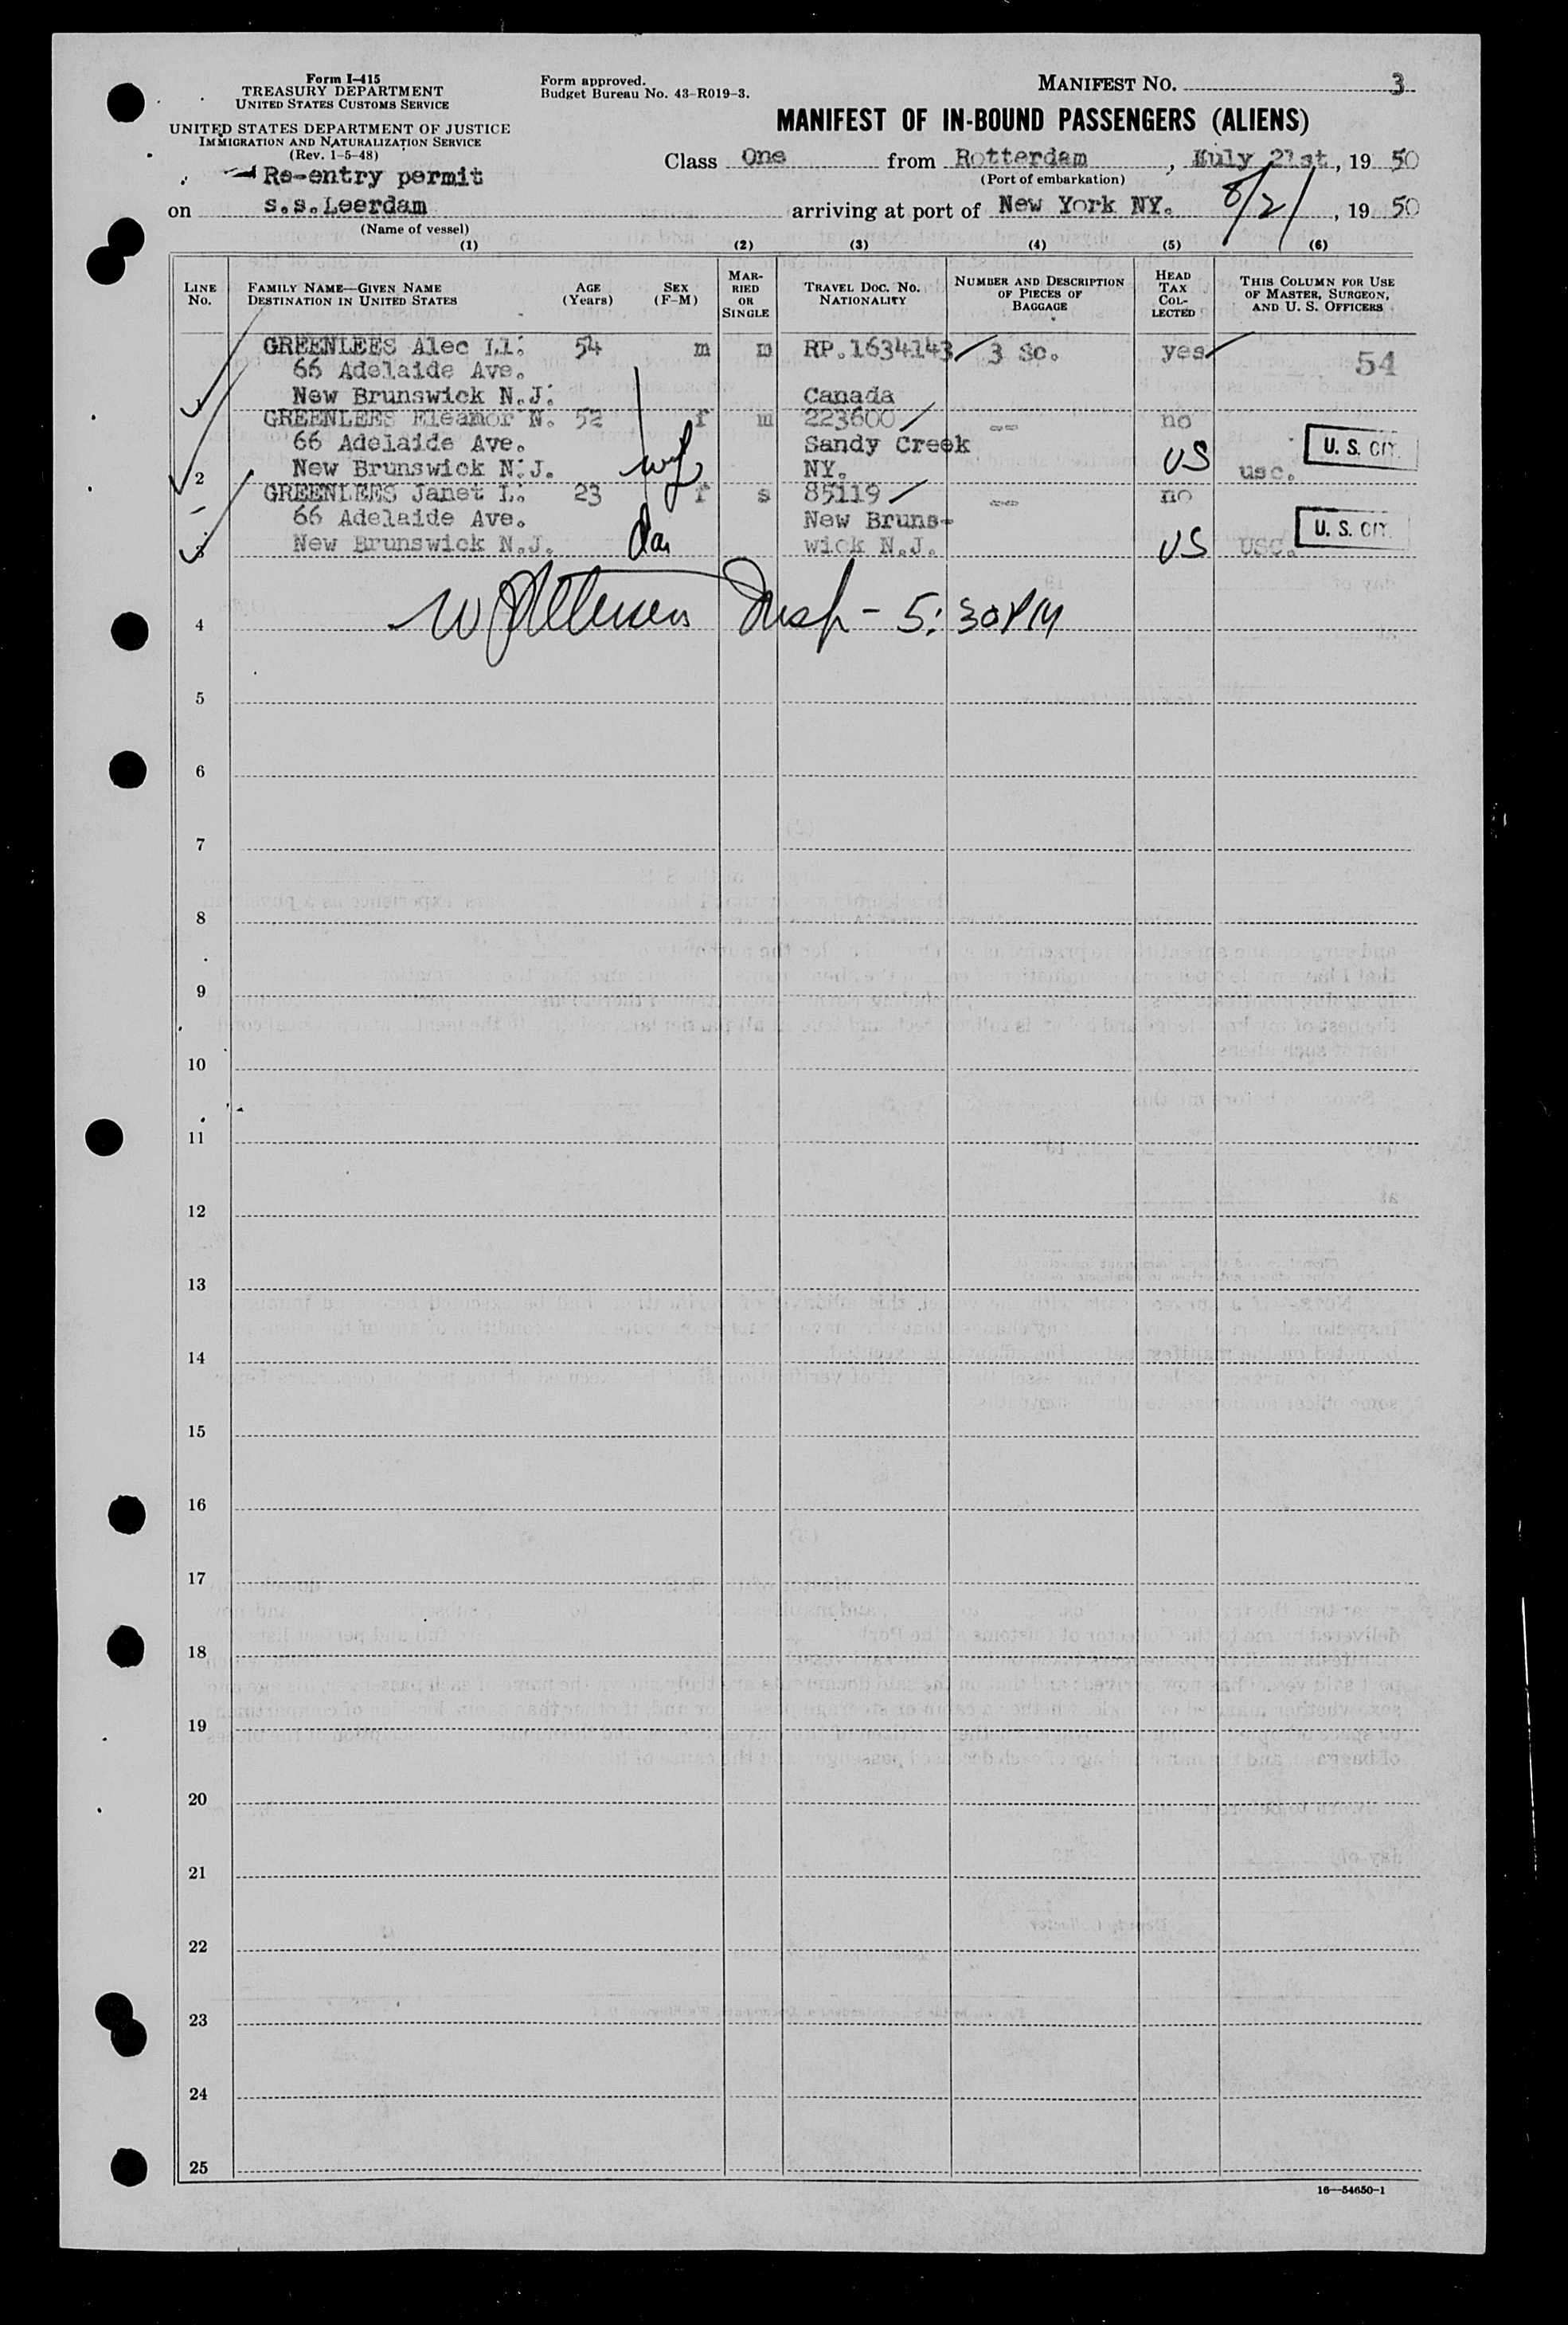 Form I-415
TREASURY DEPARTMENT
UNITED STATES CUSTOMS SERVICE
UNITED STATES DEPARTMENT OF JUSTICE
IMMIGRATION AND NATURALIZATION SERVICE
(Rev. 1-5-48)
Form approved.
Budget Bureau No. 43-R019-3.
MANIFEST NO. 3
MANIFEST OF IN-BOUND PASSENGERS (ALIENS)
Class One from Rotterdam, July 21st, 19 50
(Port of embarkation)
Re-entry permit
on s.s.Leerdam arriving at port of New York NY. 8/2/, 19 50
(Name of vessel)
(1) (2) (3) (4) (5) (6)
LINE No. FAMILY NAME—GIVEN NAME DESTINATION IN UNITED STATES AGE (Years) SEX (F-M) MARRIED OR SINGLE TRAVEL DOC. NO. NATIONALITY NUMBER AND DESCRIPTION OF PIECES OF BAGGAGE HEAD TAX COLLECTED THIS COLUMN FOR USE OF MASTER, SURGEON, AND U. S. OFFICERS
GREENLEES Alec 54 m m RP.1634143 3 Sc. yes 54
66 Adelaide Ave.
New Brunswick N.J. Canada
GREENLEES Eleamor N. 52 f m 223600 -- no
66 Adelaide Ave. Sandy Creek U. S. CIT.
2 New Brunswick N.J. wf NY. US usc.
GREENLEES Janet L. 23 f s 85119 -- no
66 Adelaide Ave. New Bruns- U. S. CIT.
3 New Brunswick N.J. da wick N.J. US usc.
4 Insp - 5:30PM
5
6
7
8
9
10
11
12
13
14
15
16
17
18
19
20
21
22
23
24
25
16—54650-1